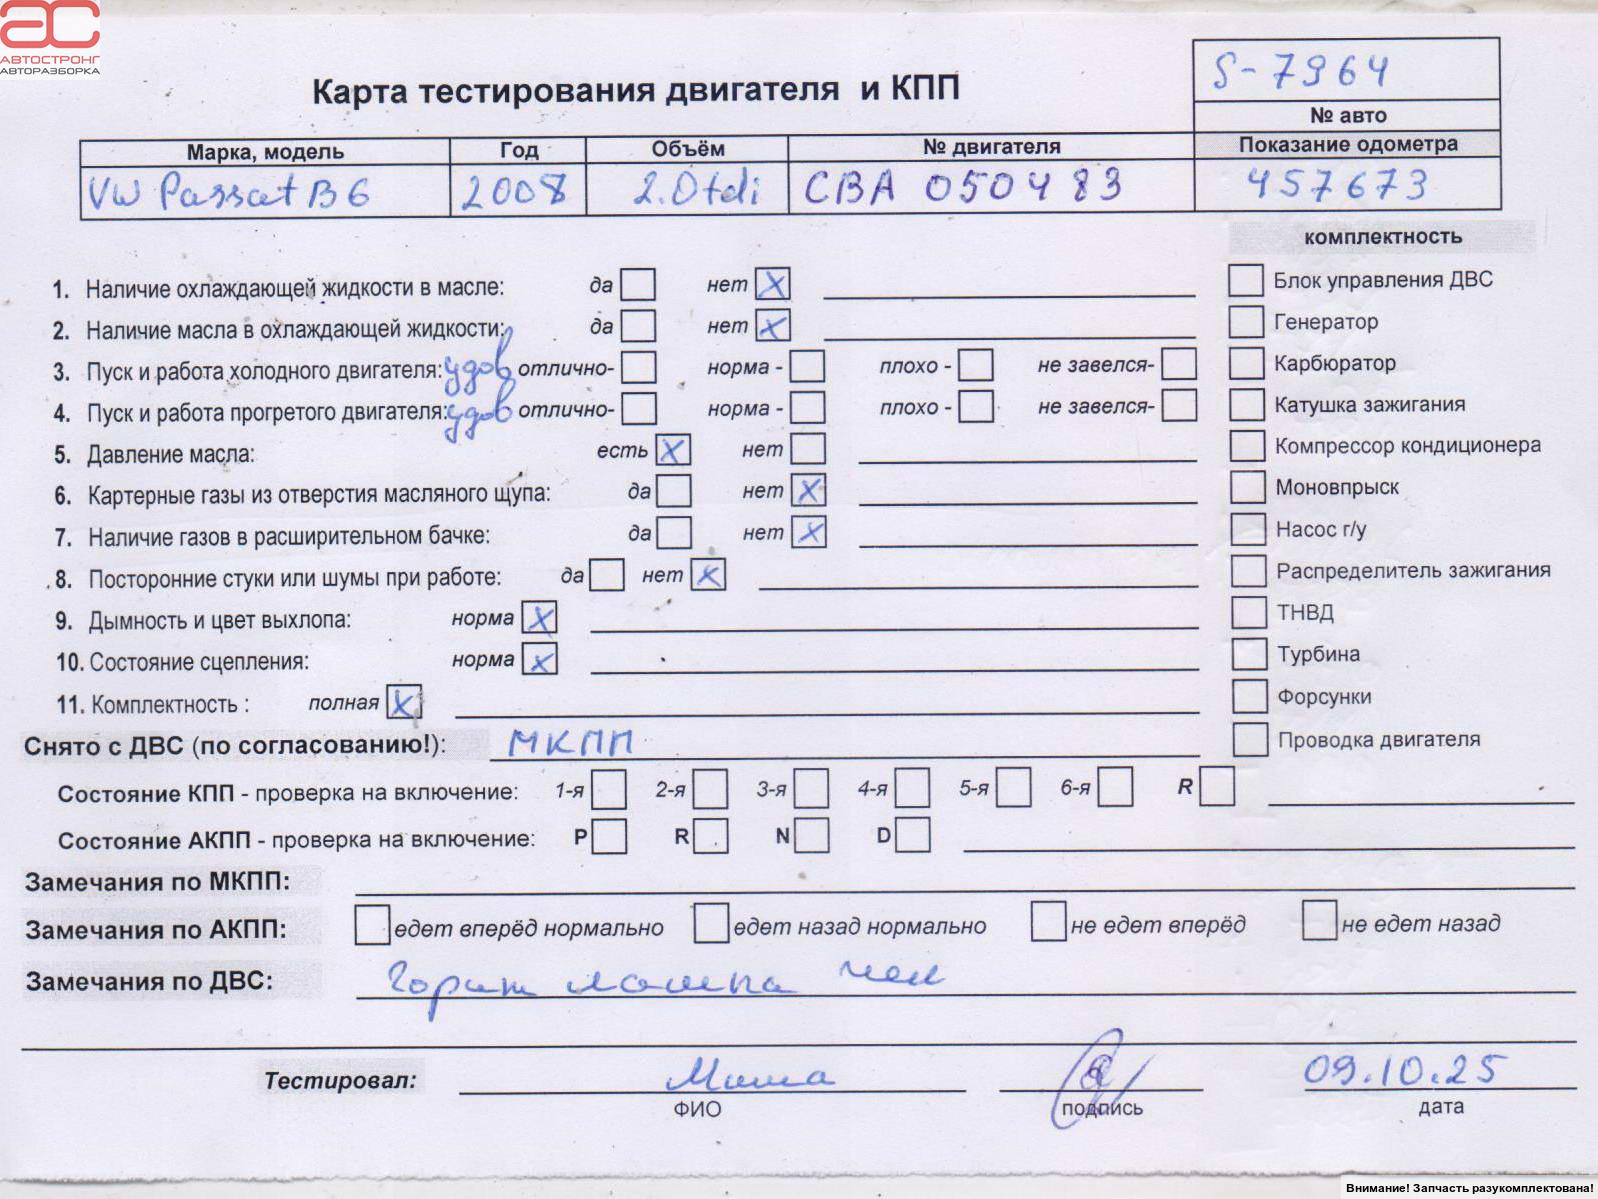 АВТОСТРОНГ
АВТОРАЗБОРКА
S-7964
Карта тестирования двигателя и КПП
№ авто
Марка, модель Год Объём № двигателя Показание одометра
VW Passat B6 2008 2.0tdi CBA 050483 457673
комплектность
1. Наличие охлаждающей жидкости в масле: да нет X
Блок управления ДВС
2. Наличие масла в охлаждающей жидкости: да нет X
Генератор
3. Пуск и работа холодного двигателя: удов отлично- норма - плохо - не завелся-
Карбюратор
4. Пуск и работа прогретого двигателя: удов отлично- норма - плохо - не завелся-
Катушка зажигания
5. Давление масла: есть X нет
Компрессор кондиционера
6. Картерные газы из отверстия масляного щупа: да нет X
Моновпрыск
7. Наличие газов в расширительном бачке: да нет X
Насос г/у
8. Посторонние стуки или шумы при работе: да нет X
Распределитель зажигания
9. Дымность и цвет выхлопа: норма X
ТНВД
10. Состояние сцепления: норма X
Турбина
11. Комплектность : полная X
Форсунки
Снято с ДВС (по согласованию!): МКПП
Проводка двигателя
Состояние КПП - проверка на включение: 1-я 2-я 3-я 4-я 5-я 6-я R
Состояние АКПП - проверка на включение: P R N D
Замечания по МКПП:
Замечания по АКПП: едет вперёд нормально едет назад нормально не едет вперёд не едет назад
Замечания по ДВС: Горит лампа чек
Тестировал: Миша 09.10.25
ФИО подпись дата
Внимание! Запчасть разукомплектована!